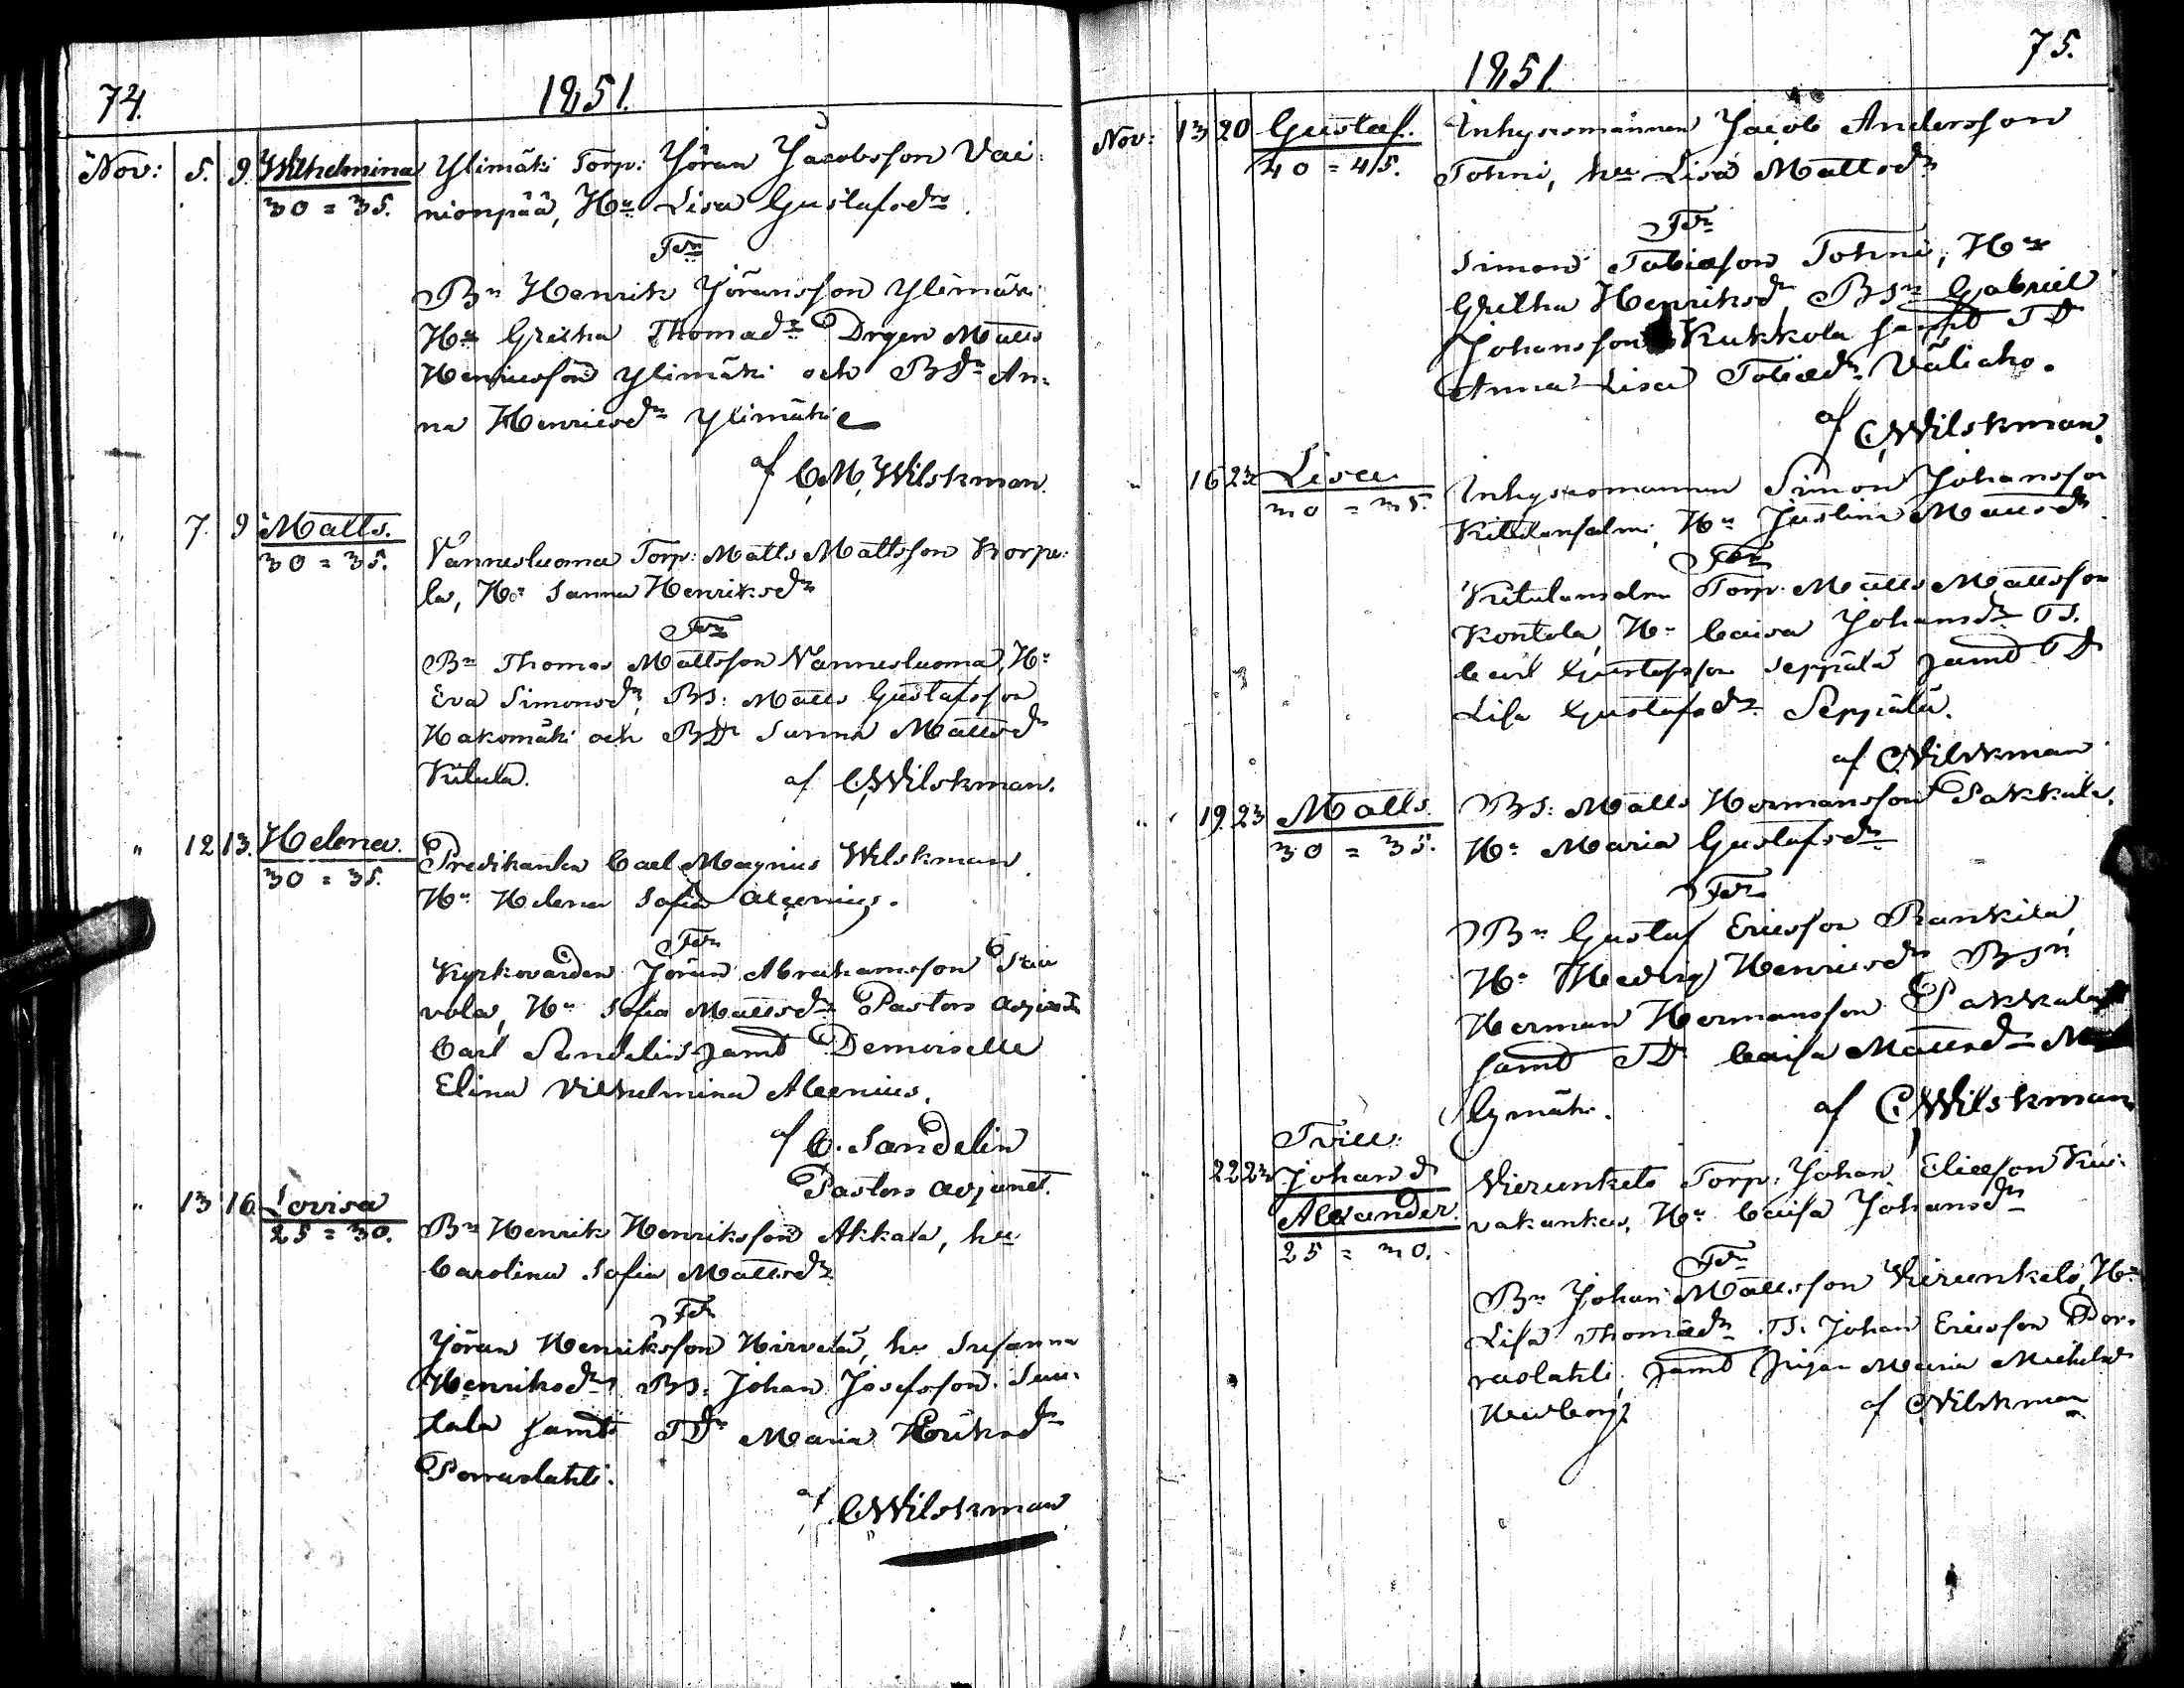 74.
1851.
Nov: 5. 9. Wilhelmina Ylimäki Torp: Jöran Jacobsson Vai:
30 = 35. nionpää, Hu Lisa Gustafsdr.
Ter
Bn Henrik Jöransson Ylimäki
Hu Gretha Thomadr Drgen Matts
Henricsson Ylimäki och BDr An:
na Henricsdr Ylimäki
af C.M. Wilskman.
" 7. 9 Matts.
30 = 35. Vannesluoma Torp: Matts Mattsson Korpe:
la, Hu Sanna Henriksdr
Ter
Bn Thomas Mattsson Vannesluoma, Hu
Eva Simonsdr, BS: Matts Gustafsson
Hakomäki och BDr Sanna Mattsdr
Kitula. af CWilskman.
" 12 13. Helena. Predikanten Carl Magnus Wilskman
30 = 35. Hu Helena Sofia Alcenius.
Ter
Kyrkovärden Jöran Abrahamsson
vola, Hu Sofia Mattsdr Pastors Adjunct
Carl Sandelin samt Demoiselle
Elina Vilhelmina Alcenius.
af C. Sandelin
Pastors adjunct.
" 13 16 Lovisa
25 = 30. Bn Henrik Henriksson Akkala, hu
Carolina Sofia Mattsdr
Ter
Jöran Henriksson Hirvelä, hu Susanna
Henriksdr BS: Johan Josefsson
tala samt TDr Maria
Porraslahti.
af CWilskman
75.
1851.
Nov: 13 20 Gustaf. Inhysesmannen Jacob Andersson
40 = 45. Tohni, hu Lisa Mattsdr
Ter
Simon Tobiasson Tohni, Hu
Gretha Henriksdr BSn Gabriel
Johansson Kukkola samt TD
Anna Lisa Tobiadr Väliaho.
af CWilskman.
" 16 23 Lisa Inhysesmannen Simon Johansson
30 = 35. Kitulansalmi, Hu Justina Mattsdr
Ter
Kitulansalmi Torp. Matts Mattsson
Kontola, Hu Caisa Johansdr TS.
Carl Gustafsson Seppälä samt TD
Lisa Gustafsdr Seppälä.
af CWilskman
" 19. 23 Matts. BS: Matts Hermansson Pakkala,
30 = 35. Hu Maria Gustafsdr
Ter
Bn Gustaf Ericsson Rankila,
Hu Hedvig Henricsdr BSn
Herman Hermansson Pakkala
samt TD Caisa Mattsdr
lymäki. af C. Wilskman
Tvill:
" 22 23 Johan &
Alexander. Vierunketo Torp: Johan Eliasson Kui:
25 = 30. vakankas, Hu Caisa Johansdr
Ter
Bn Johan Mattsson Vierunketo, Hu
Lisa Thomadr TS: Johan Ericsson Por:
raslahti, samt Pigan Maria
af CWilskman